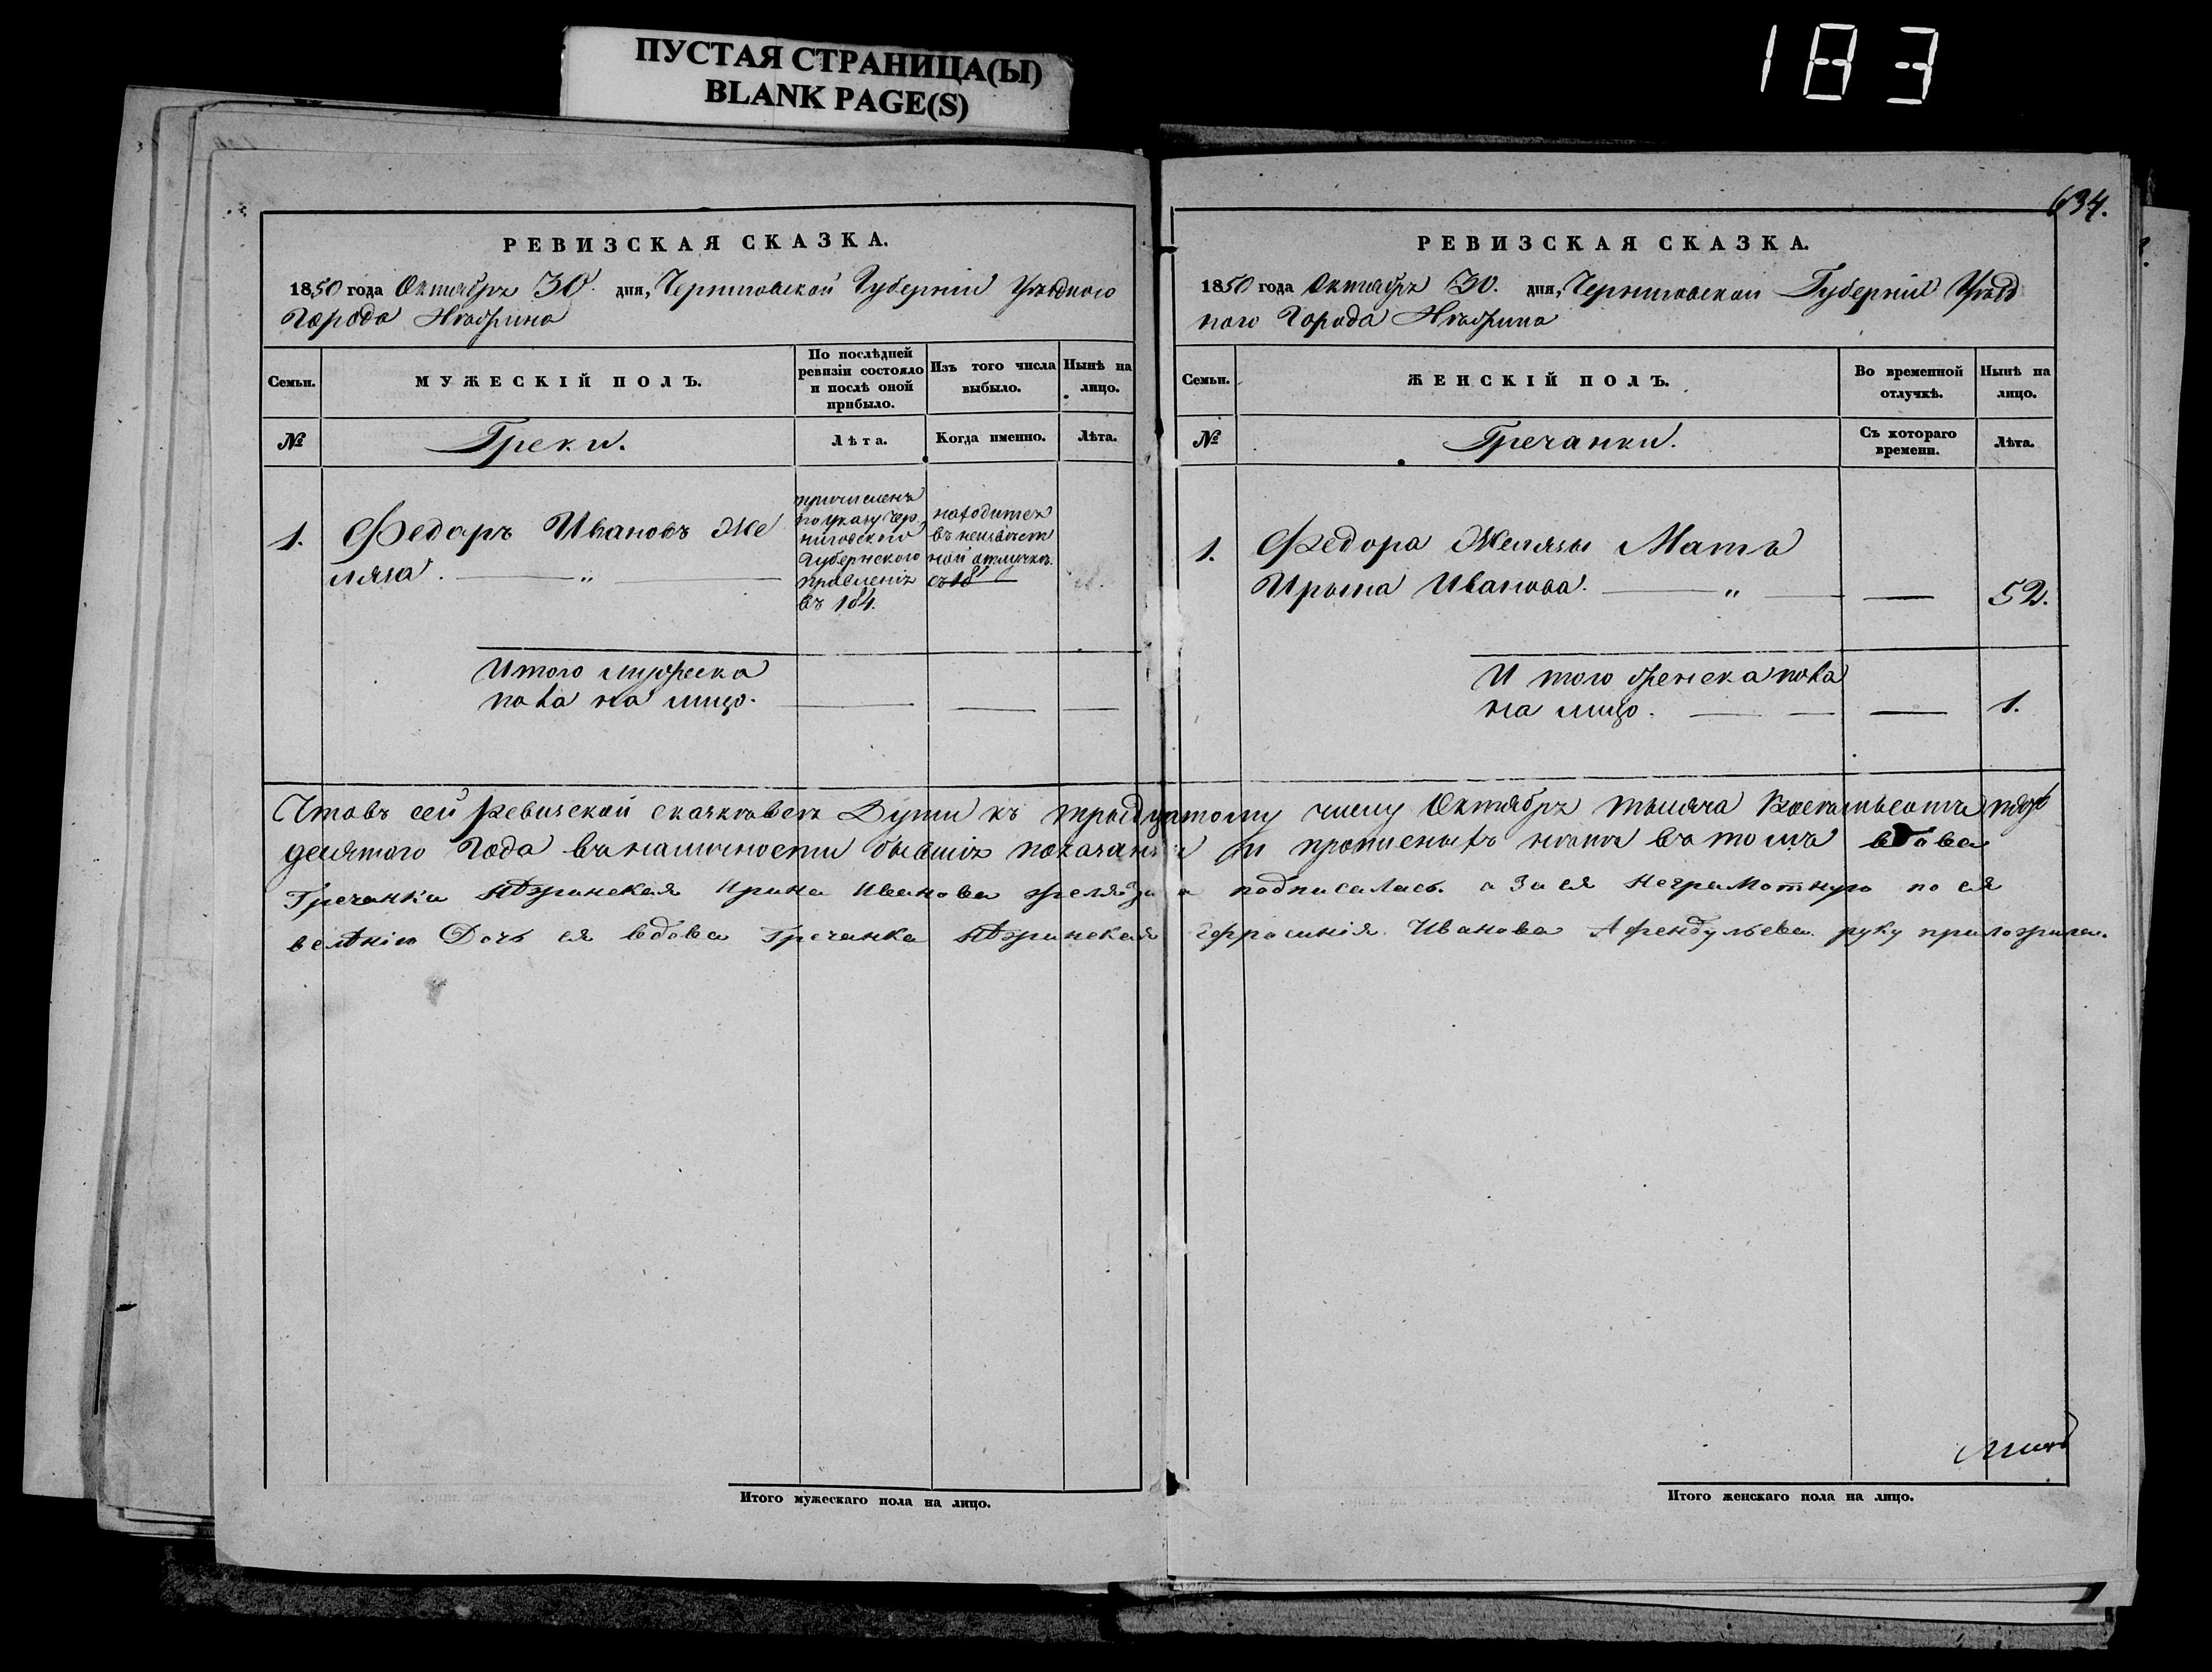 ПУСТАЯ СТРАНИЦА(Ы)
BLANK PAGE(S)
183
РЕВИЗСКАЯ СКАЗКА.
1850 года Октября 30. дня, Черниговской Губерніи Уѣзднаго
Города Нѣжина
Семьи.
МУЖЕСКІЙ ПОЛЪ.
По послѣдней
ревизіи состояло
и послѣ оной
прибыло.
Изъ того числа
выбыло.
Нынѣ на
лицо.
№
Греки.
Лѣта.
Когда именно.
Лѣта.
1.
Федоръ Ивановъ Же
ляза. — „ —
причисленъ
по указу Чер
ниговского
Губернского
Правленія
въ 184.
находится
въ неизвѣст
ной отлучкѣ.
съ 18
Итого мужеска
пола на лицо. — — —
634.
РЕВИЗСКАЯ СКАЗКА.
1850 года Октября 30. дня, Черниговской Губерніи Уѣзд
наго Города Нѣжина
Семьи.
ЖЕНСКІЙ ПОЛЪ.
Во временной
отлучкѣ.
Нынѣ на
лицо.
№
Гречанки.
Съ котораго
времени.
Лѣта.
1.
Федора Желязы Мать
Ирына Иванова. — „ — — 52.
И того женска пола
на лицо. — — — 1.
Что въ сей ревизской сказкѣ всѣ Души къ тридцатому числу Октября тысяча восемьсотъ пядь
десятого Года въ наличности бывшіе показаны и прописныхъ нѣтъ въ томъ вдова
Гречанка Нѣжинская Ирина Иванова Желяза подписалась. а за ея неграмотную по ея
велѣнію Дочь ея вдова Гречанка Нѣжинская Иванова Афендульева руку приложила.
Итого мужескаго пола на лицо.
Итого женскаго пола на лицо.